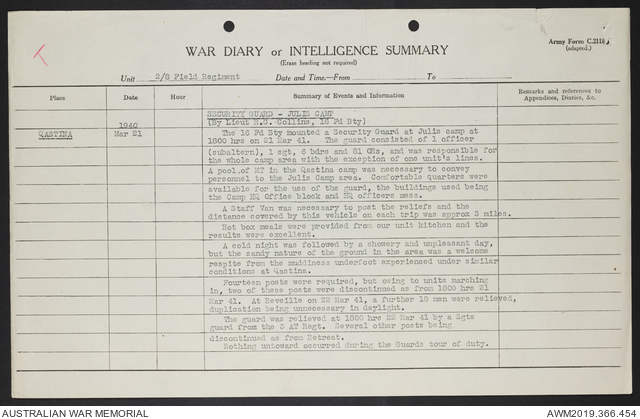 Army Form C.2118
(adapted.)
WAR DIARY or INTELLIGENCE SUMMARY
(Erase heading not required)
Unit 2/8 Field Regiment Date and Time.—From To
Place Date Hour Summary of Events and Information Remarks and references to Appendices, Diaries, &c.
SECURITY GUARD - JULIS CAMP
(By Lieut Collins, 16 Fd Bty)
1940
QASTINA Mar 21 The 16 Fd Bty mounted a Security Guard at Julis camp at
1800 hrs on 21 Mar 41. The guard consisted of 1 officer
(subaltern), 1 sgt, 6 bdrs and 81 ORs, and was responsible for
the whole camp area with the exception of one unit's lines.
A pool of MT in the Qastina camp was necessary to convey
personnel to the Julis Camp area. Comfortable quarters were
available for the use of the guard, the buildings used being
the Camp HQ Office block and HQ officers mess.
A Staff Van was necessary to post the reliefs and the
distance covered by this vehicle on each trip was approx 3 miles.
Hot box meals were provided from our unit kitchen and the
results were excellent.
A cold night was followed by a showery and unpleasant day,
but the sandy nature of the ground in the area was a welcome
respite from the muddiness underfoot experienced under similar
conditions at Qastina.
Fourteen posts were required, but owing to units marching
in, two of these posts were discontinued as from 1800 hrs 21
Mar 41. At Reveille on 22 Mar 41, a further 18 men were relieved,
duplication being unnecessary in daylight.
The guard was relieved at 1800 hrs 22 Mar 41 by a Sgts
guard from the 3 AT Regt. Several other posts being
discontinued as from Retreat.
Nothing untoward occurred during the Guards tour of duty.
AUSTRALIAN WAR MEMORIAL AWM2019.366.454